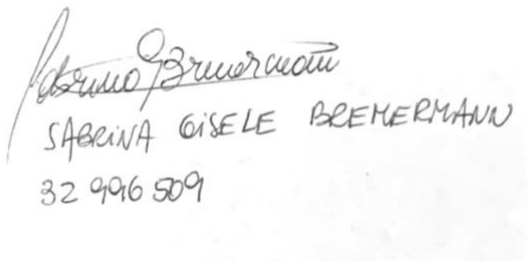 Sabrina G Bremermann
SABRINA GISELE BREMERMANN
32 996 509